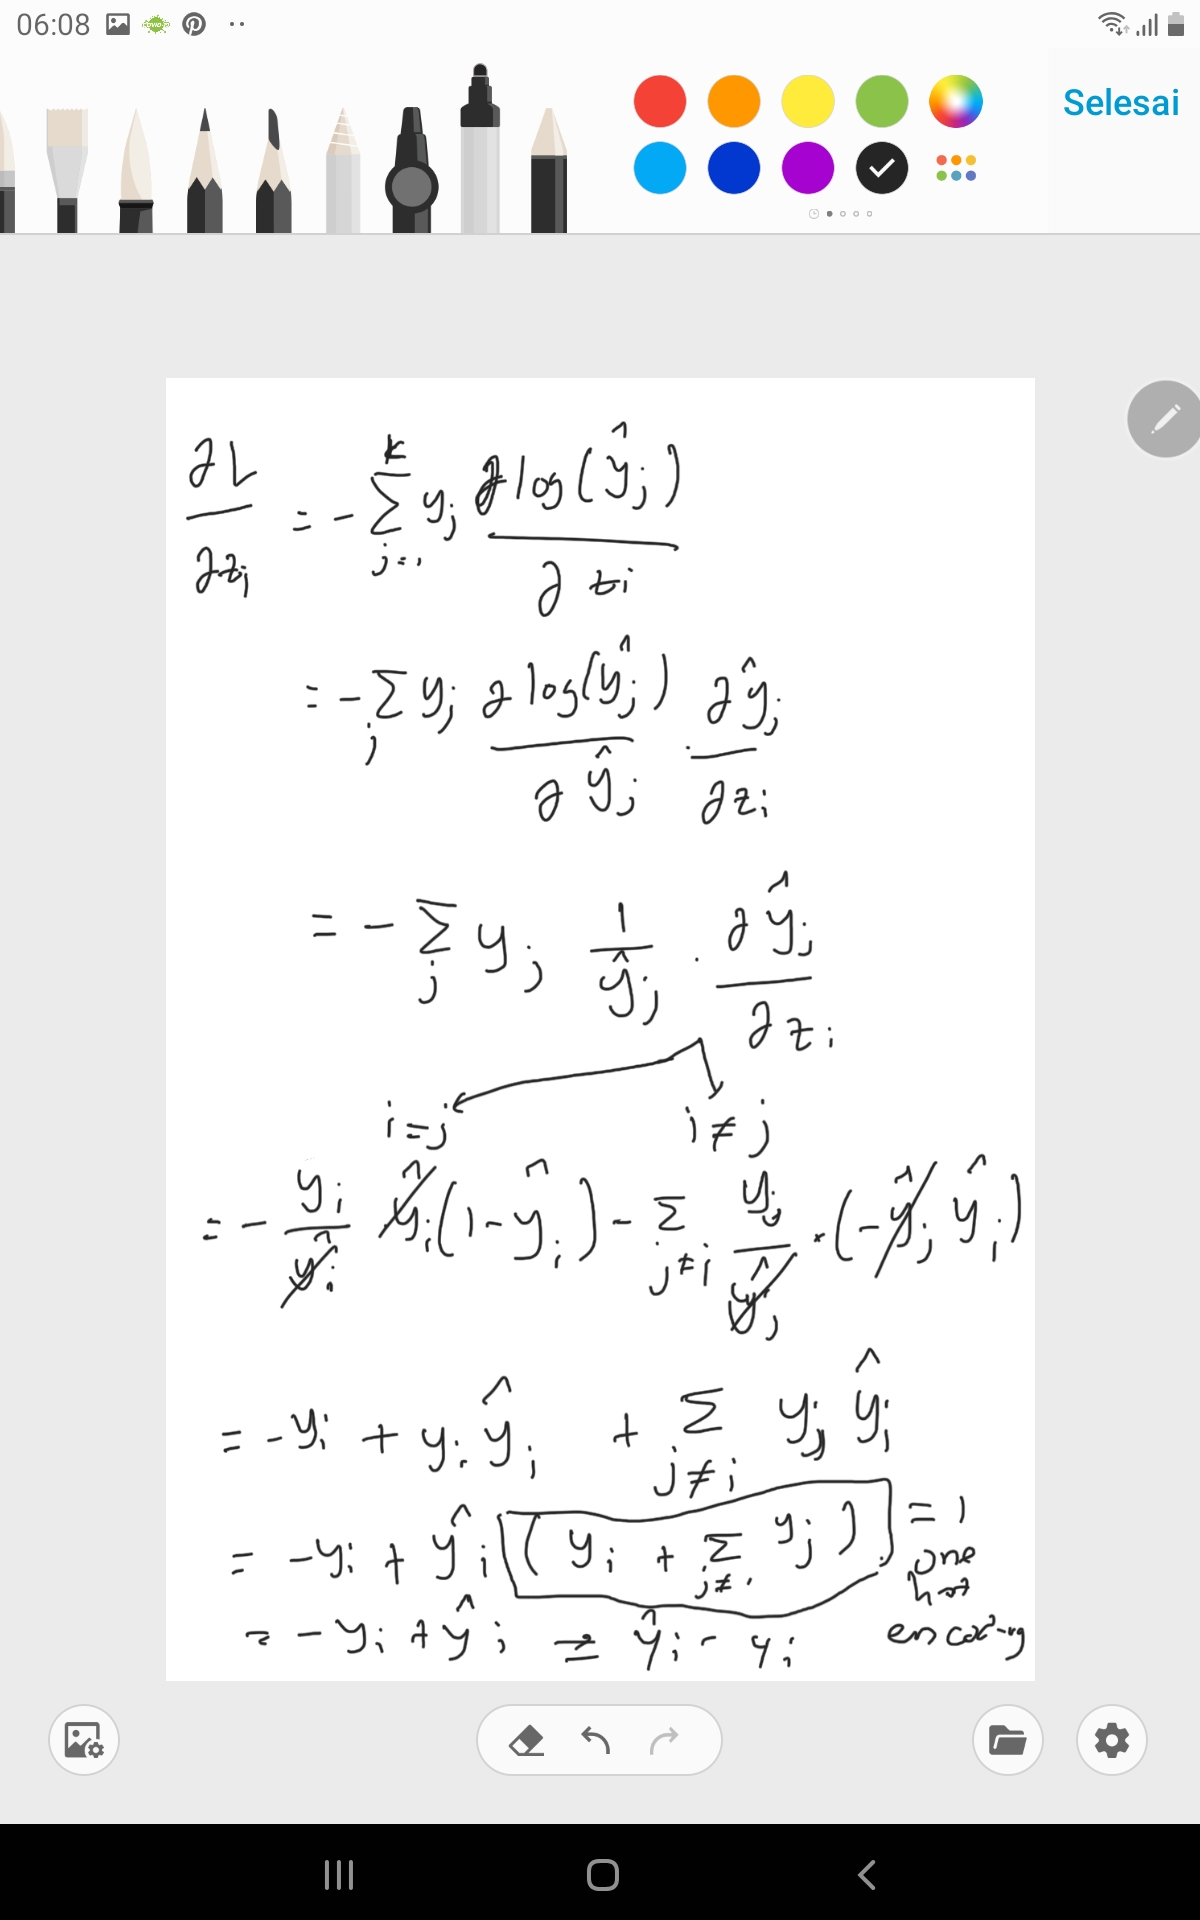 06:08
Selesai
∂L/∂zi = - Σ_{j=1}^{k} yj ∂log(ŷj)/∂zi
= - Σ_j yj ∂log(ŷj)/∂ŷj ∂ŷj/∂zi
= - Σ_j yj 1/ŷj · ∂ŷj/∂zi
i=j i≠j
= - yi/ŷi ŷi(1-ŷi) - Σ_{j≠i} yj/ŷj · (-ŷj ŷi)
= -yi + yi ŷi + Σ_{j≠i} yj ŷi
= -yi + ŷi (yi + Σ_{j≠i} yj) = 1
one
hot
encoding
= - yi + ŷi = ŷi - yi